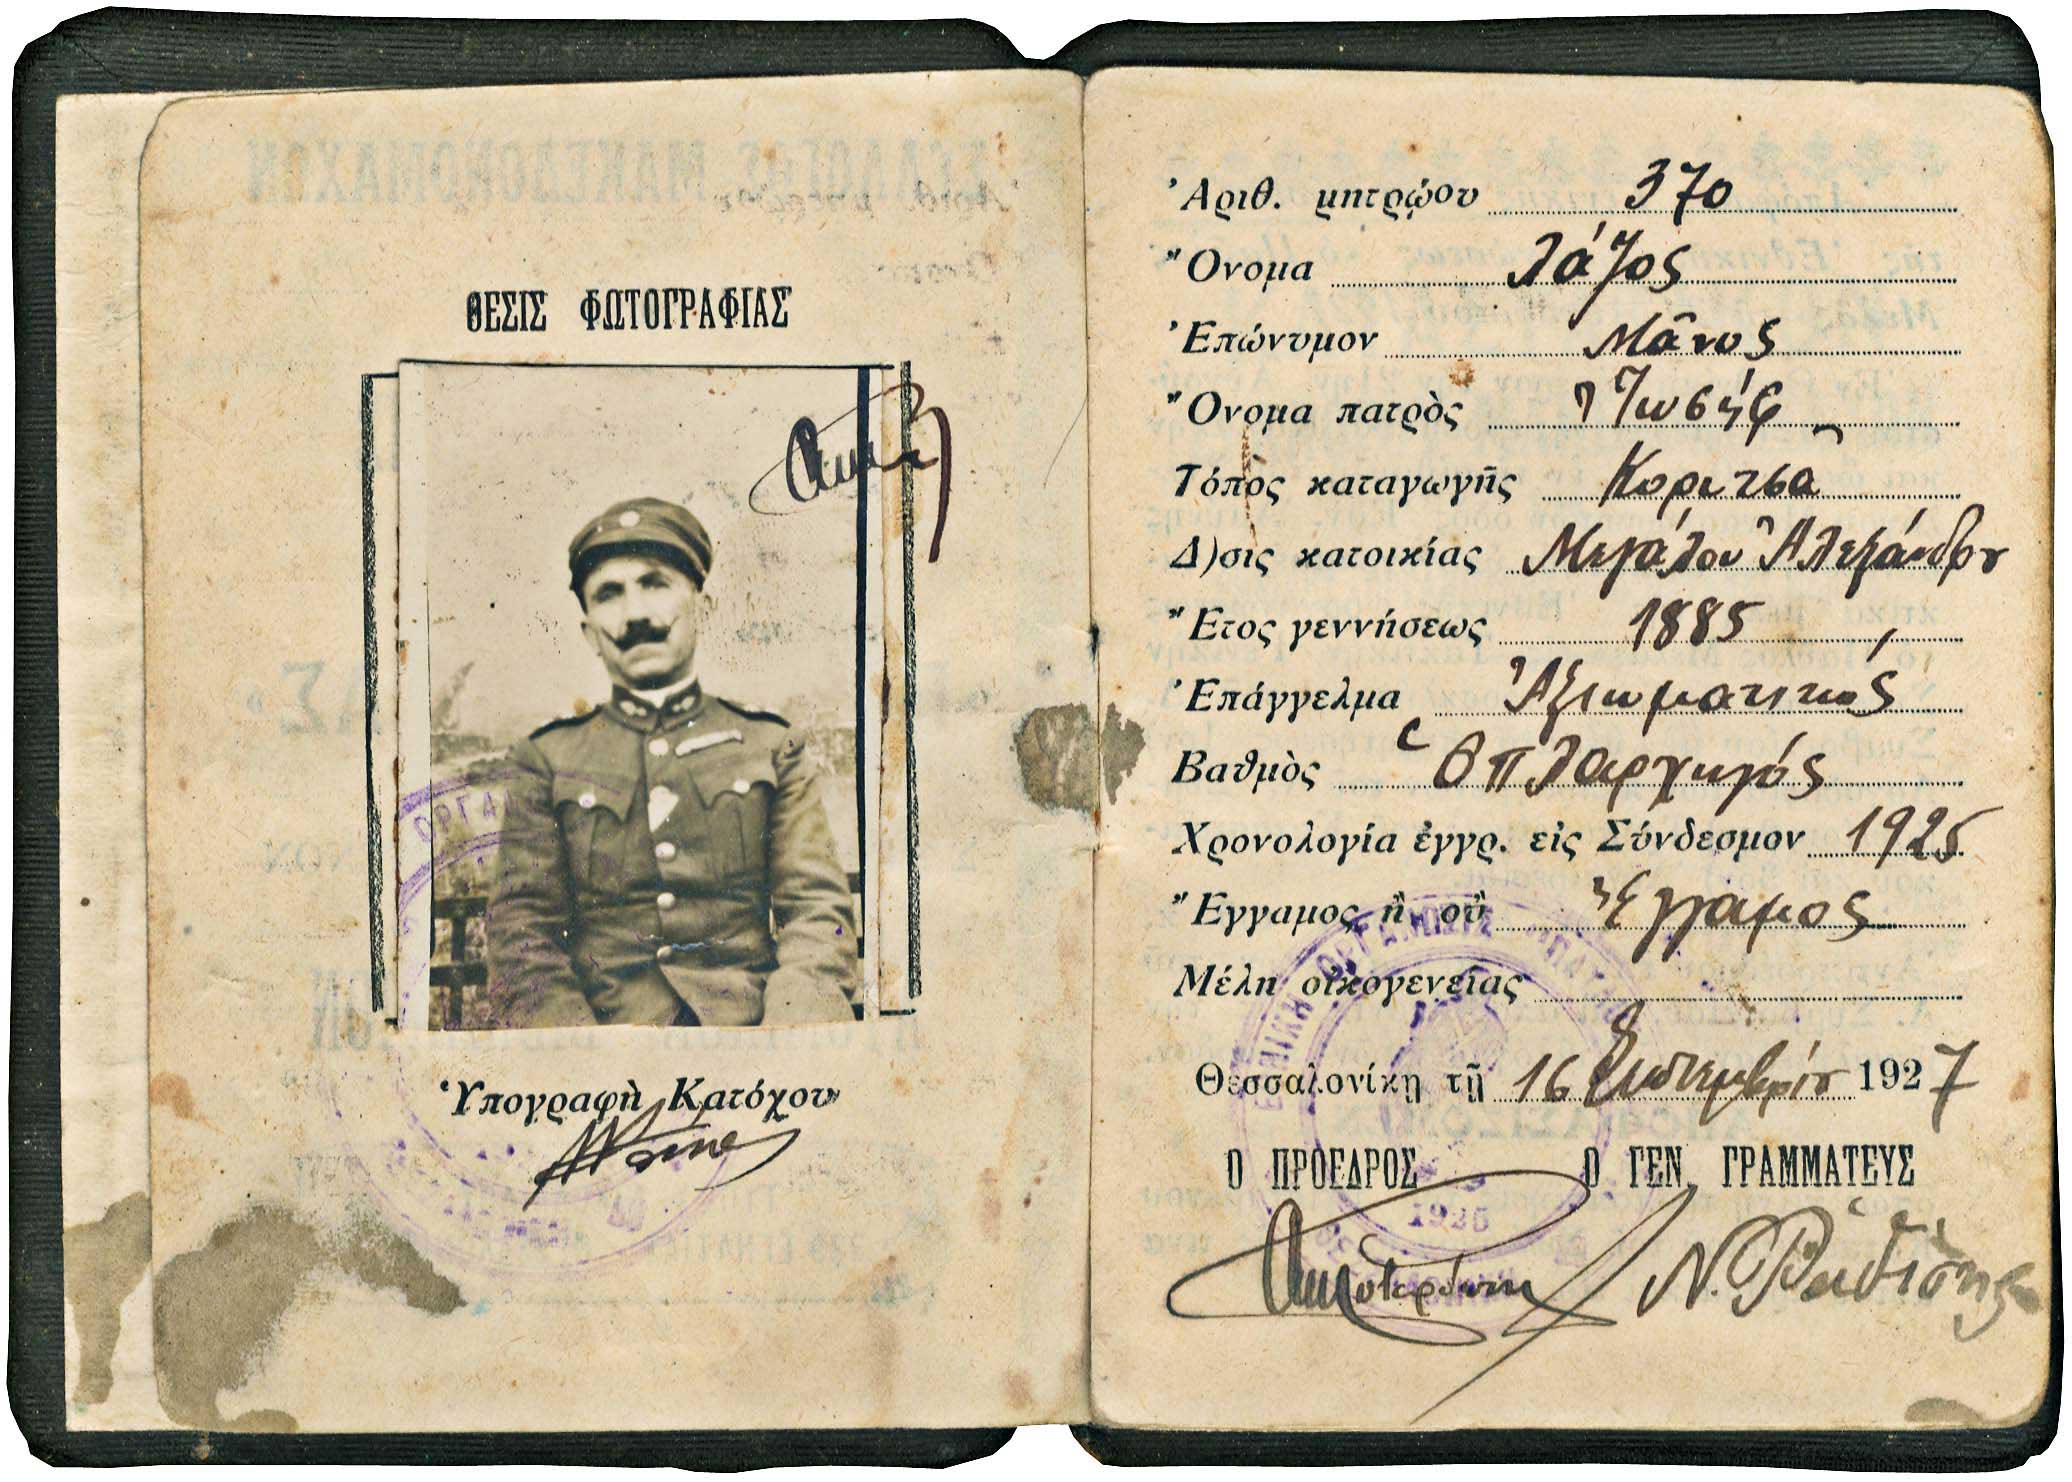 ΘΕΣΙΣ ΦΩΤΟΓΡΑΦΙΑΣ
Ὑπογραφὴ Κατόχου
Ἀριθ. μητρῴου 370
Ὄνομα Λάζος
Ἐπώνυμον Μᾶνος
Ὄνομα πατρὸς Ἰωσήφ
Τόπος καταγωγῆς Κοριτσᾶ
Δ)σις κατοικίας Μεγάλου Ἀλεξάνδρου
Ἔτος γεννήσεως 1885
Ἐπάγγελμα Ἀξιωματικός
Βαθμὸς Ὁπλαρχηγός
Χρονολογία ἐγγρ. εἰς Σύνδεσμον 1925
Ἔγγαμος ἢ οὔ Ἔγγαμος
Μέλη οἰκογενείας
Θεσσαλονίκῃ τῇ 16 Σεπτεμβρίου 1927
Ο ΠΡΟΕΔΡΟΣ Ο ΓΕΝ. ΓΡΑΜΜΑΤΕΥΣ
1925